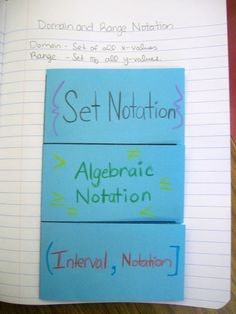 Domain and Range Notation
Domain - Set of all x-values
Range - Set of all y-values.
{Set Notation}
> Algebraic <
Notation
≥ = ≤
(Interval, Notation]